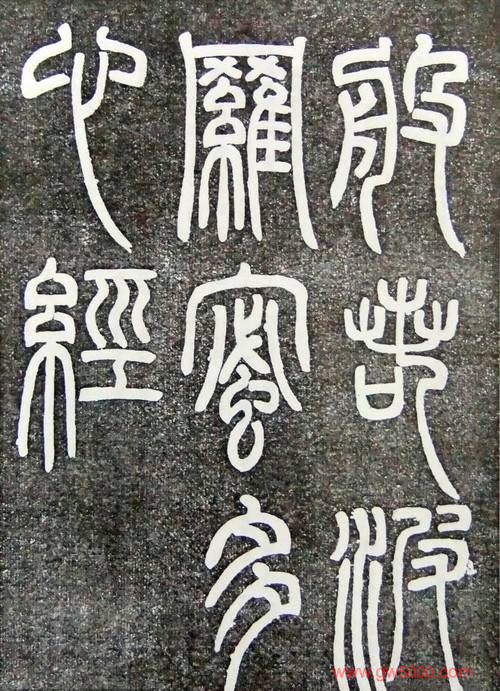 般若波
羅蜜多
心經
www.gw5000.com